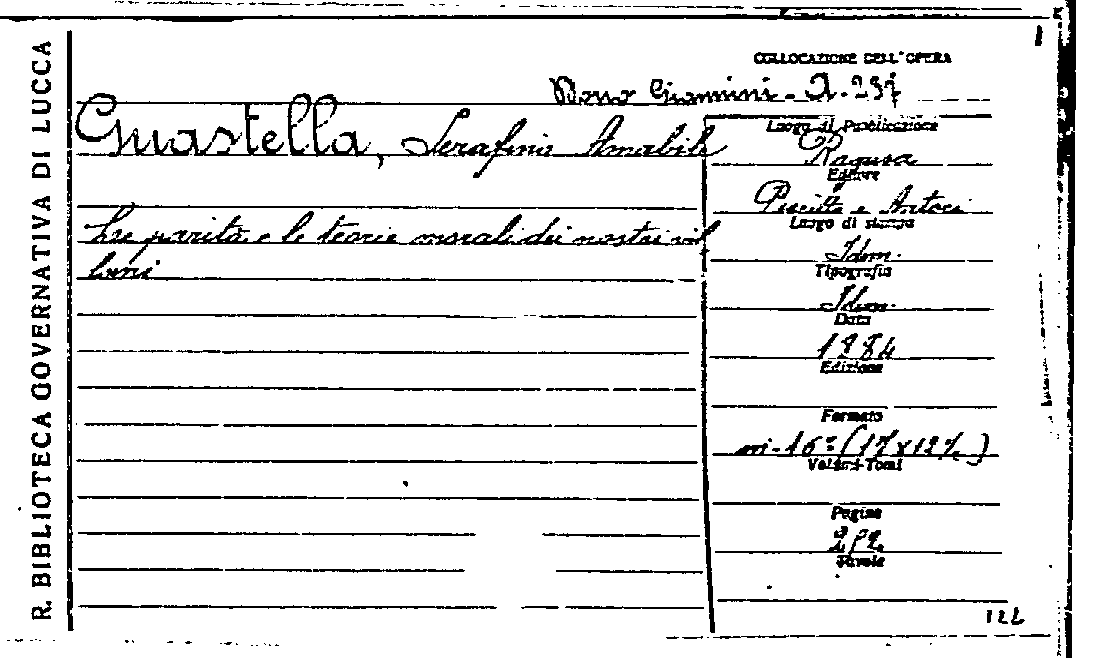 R. BIBLIOTECA GOVERNATIVA DI LUCCA
COLLOCAZIONE DELL'OPERA
Dono Giannini - A. 237
Guastella, Serafino Amabile
Le parità e le teorie morali dei nostri vil
lani
Luogo di Pubblicazione
Ragusa
Editore
Piccitto e Antoci
Luogo di stampa
Idem.
Tipografia
Idem.
Data
1884
Edizione
Formato
in-16° (17x12½)
Volumi-Tomi
Pagine
Tavole
122